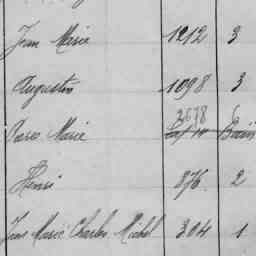 Jean Marie 1212 3
Augustin 1098 3
3678 6
Marie
Henri 876 2
Jean Marie Charles Michel 304 1